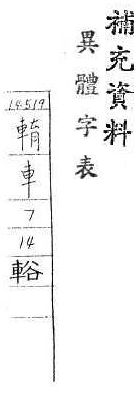 補充資料
異體字表
14519
車
7
14
輍